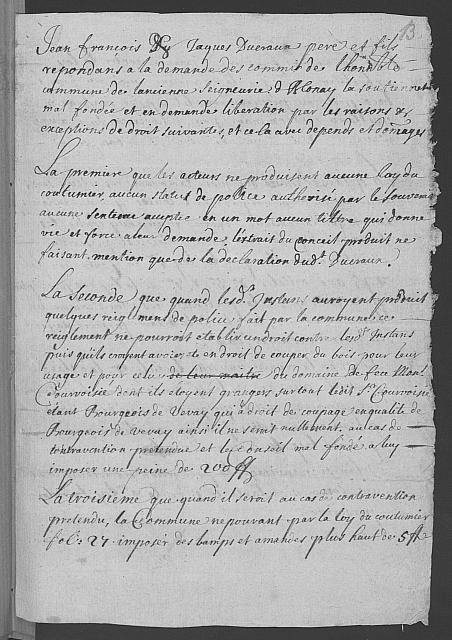 13
Jean François & Jaques Ducraux pere et fils
repondans a la demande des commis de lhon
commune de lancienne Seigneurie d Monay la soutiennent
mal fondée et en demande liberation par les raisons &
exceptions de droit suivantes, et ce la avec depends et domages
La premiere que les acteurs ne produisent aucune loy du
coutumier, aucun status de police authorisé par le souverain
aucune sentence en un mot aucun tiltre qui donne
vie et force a leur demande lextrait du conceil produit ne
faisant mention que de la declaration dud. Ducraux.
La seconde que quand lesd. Instans auroyent produit
quelques reiglement de police fait par la commune ce
reiglement ne pourroit etablir un droit contre lesd. Instans
puis qu'ils croyent avoir en droit de couper du bois pour leur
usage et pour celui de leur maitre du domaine de feee Mon.
Courvoisie dont ils etoyent grangers surtout ledit Sr. Courvoisie
etant Bourgeois de Vevay qui a droit de coupage en qualite de
Bourgeois de vevay ainsi il ne seroit nullement au cas de
contravention pretendue et le Conseil mal fondé a luy
imposer une peine de 200 ff
La troisieme que quand il seroit au cas de contravention
pretendu, la Commune ne pouvant par la loy du coutumier
fol: 27. imposer des bamps et amandes plus haut de 5 ff